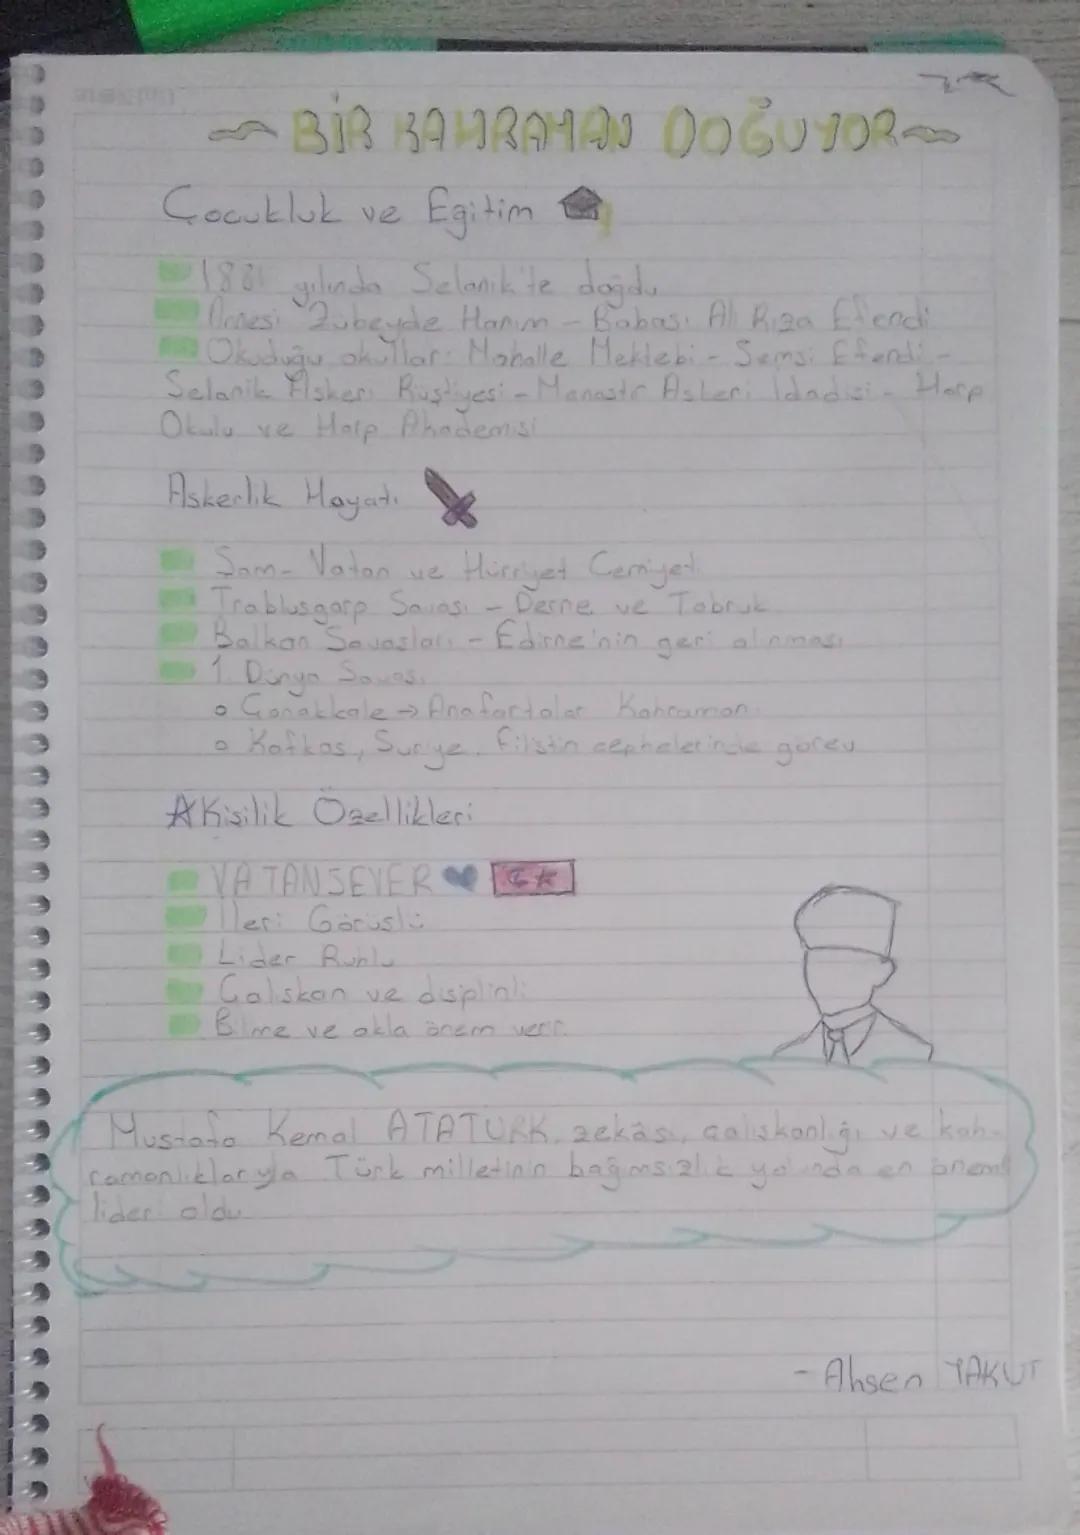 BİR KAHRAMAN DOĞUYOR
Çocukluk ve Eğitim
1881 yılında Selanik'te doğdu
Annesi Zübeyde Hanım - Babası Ali Rıza Efendi
Okuduğu okullar: Mahalle Mektebi - Şemsi Efendi -
Selanik Askeri Rüştiyesi - Manastır Askeri İdadisi - Harp
Okulu ve Harp Akademisi
Askerlik Hayatı
Şam - Vatan ve Hürriyet Cemiyeti
Trablusgarp Savaşı - Derne ve Tobruk
Balkan Savaşları - Edirne'nin geri alınması
1. Dünya Savaşı
Çanakkale → Anafartalar Kahramanı
Kafkas, Suriye, Filistin cephelerinde görev
Kişilik Özellikleri
VATANSEVER
İleri Görüşlü
Lider Ruhlu
Çalışkan ve disiplinli
Bilime ve akla önem verir.
Mustafa Kemal ATATÜRK, zekâsı, çalışkanlığı ve kah-
ramanlıklarıyla Türk milletinin bağımsızlık yolunda en önemli
lideri oldu
- Ahsen YAKUT